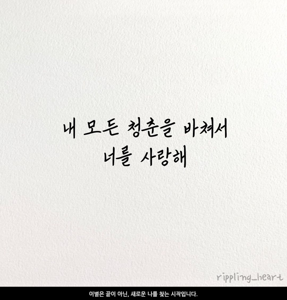 내 모든 청춘을 바쳐서
너를 사랑해
rippling_heart
이별은 끝이 아닌, 새로운 나를 찾는 시작입니다.